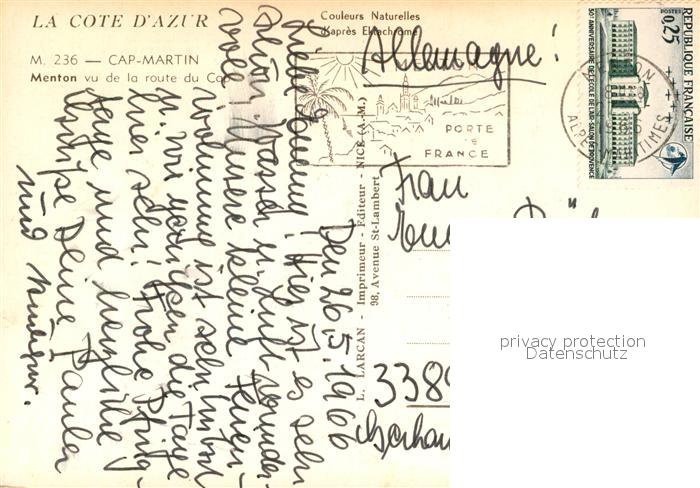 LA COTE D'AZUR
M. 236 — CAP-MARTIN
Menton vu de la route du
Couleurs Naturelles
d'après Ektachrome
Allemagne!
PORTE
DE
FRANCE
MENTON
ALPES MARITIMES
REPUBLIQUE FRANÇAISE
POSTES
0,25
50e ANNIVERSAIRE DE L'ECOLE DE L'AIR - SALON DE PROVENCE
L. LARCAN — Imprimeur - Editeur - NICE (A.-M.)
98, Avenue St-Lambert
Den 26.5.1966
Hier ist es sehr
schön, Wasser u. Luft wunder-
voll, unsere kleine
ist sehr
u. wir genießen die Tage
hier sehr! Frohe Pfing-
sttage und herzliche
Grüße Deine
und
Frau
338
privacy protection
Datenschutz